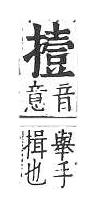 撎
音
意
舉手
揖也